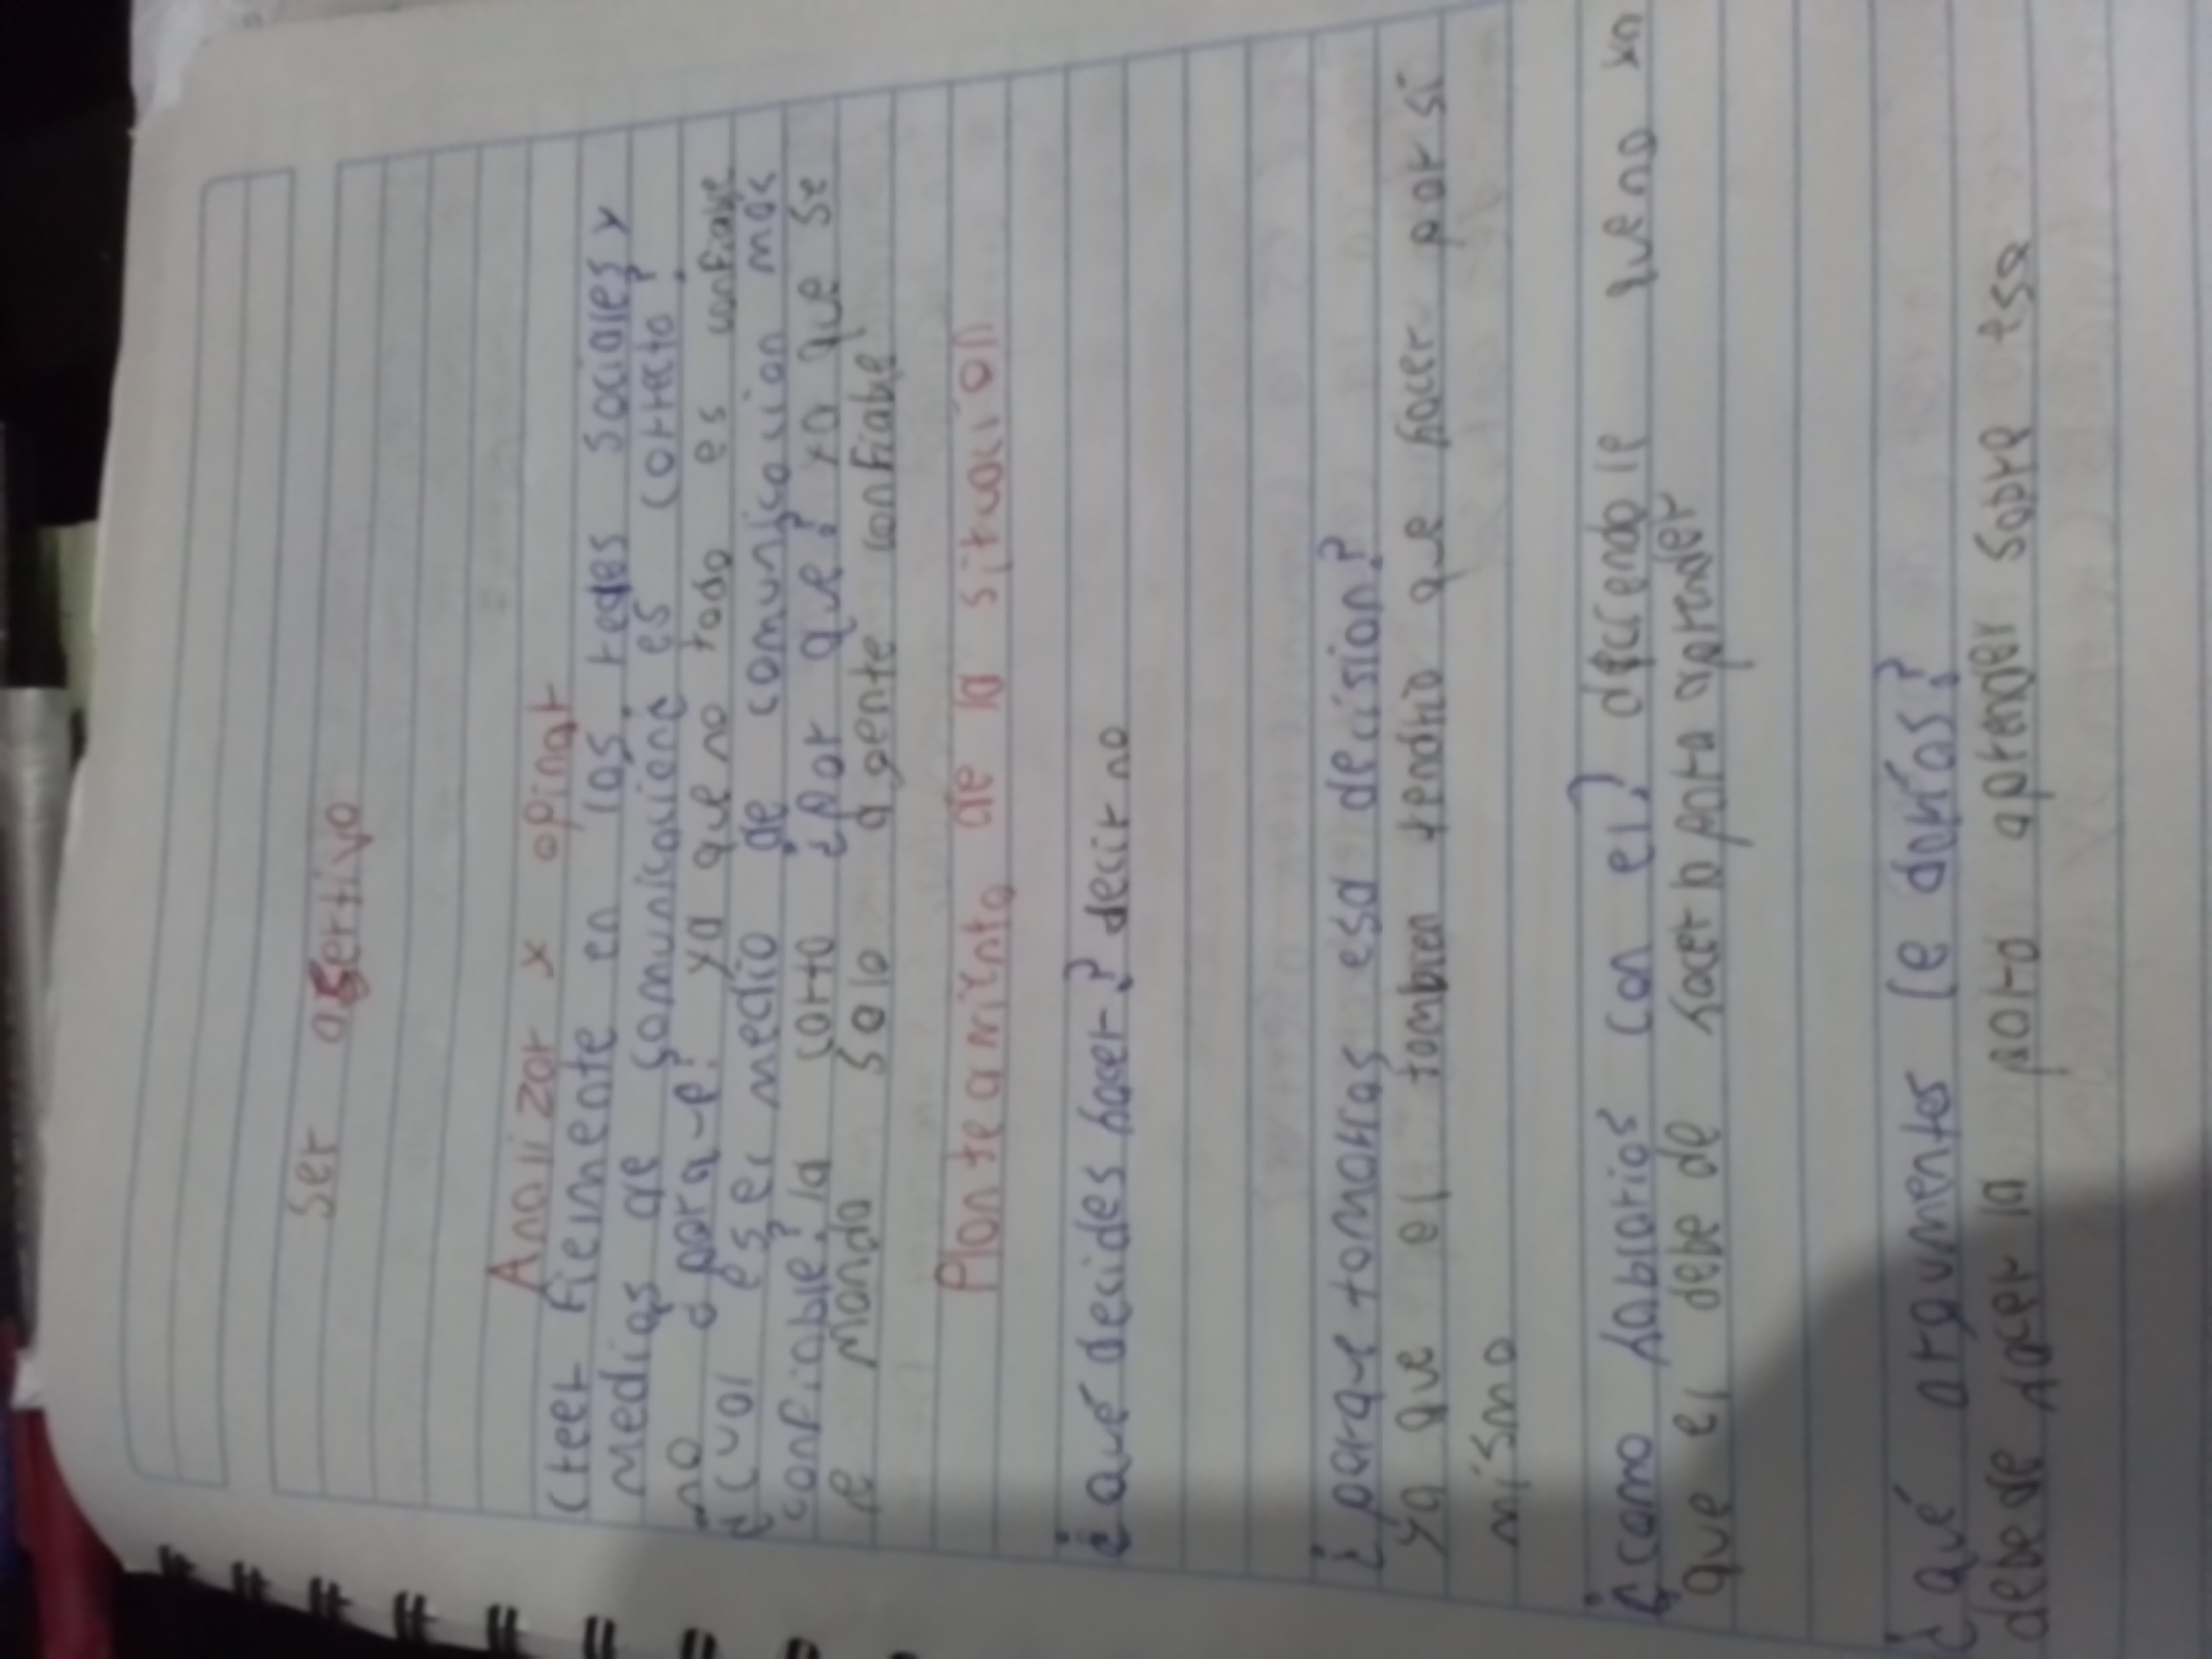 Ser asertivo
Analizar x opinar
creer fielmente en las redes sociales y
medios de comunicacions es correcto?
no o para-e? ya que no todo es confiable
¿cual es el medio de comunicacion más
confiable? la carta ¿por que? ya que se
e manda solo a gente confiable
Planteamiento de la situacion
¿qué decides hacer? decir no
¿porque tomarias esa decision?
ya que el tambien tendria que hacer por si
mismo
¿como hablarias con el? deciendole que no xn
que el debe de hacerlo para aprender
¿qué argumentos le darías?
debe de hacer la para aprender sobre eso